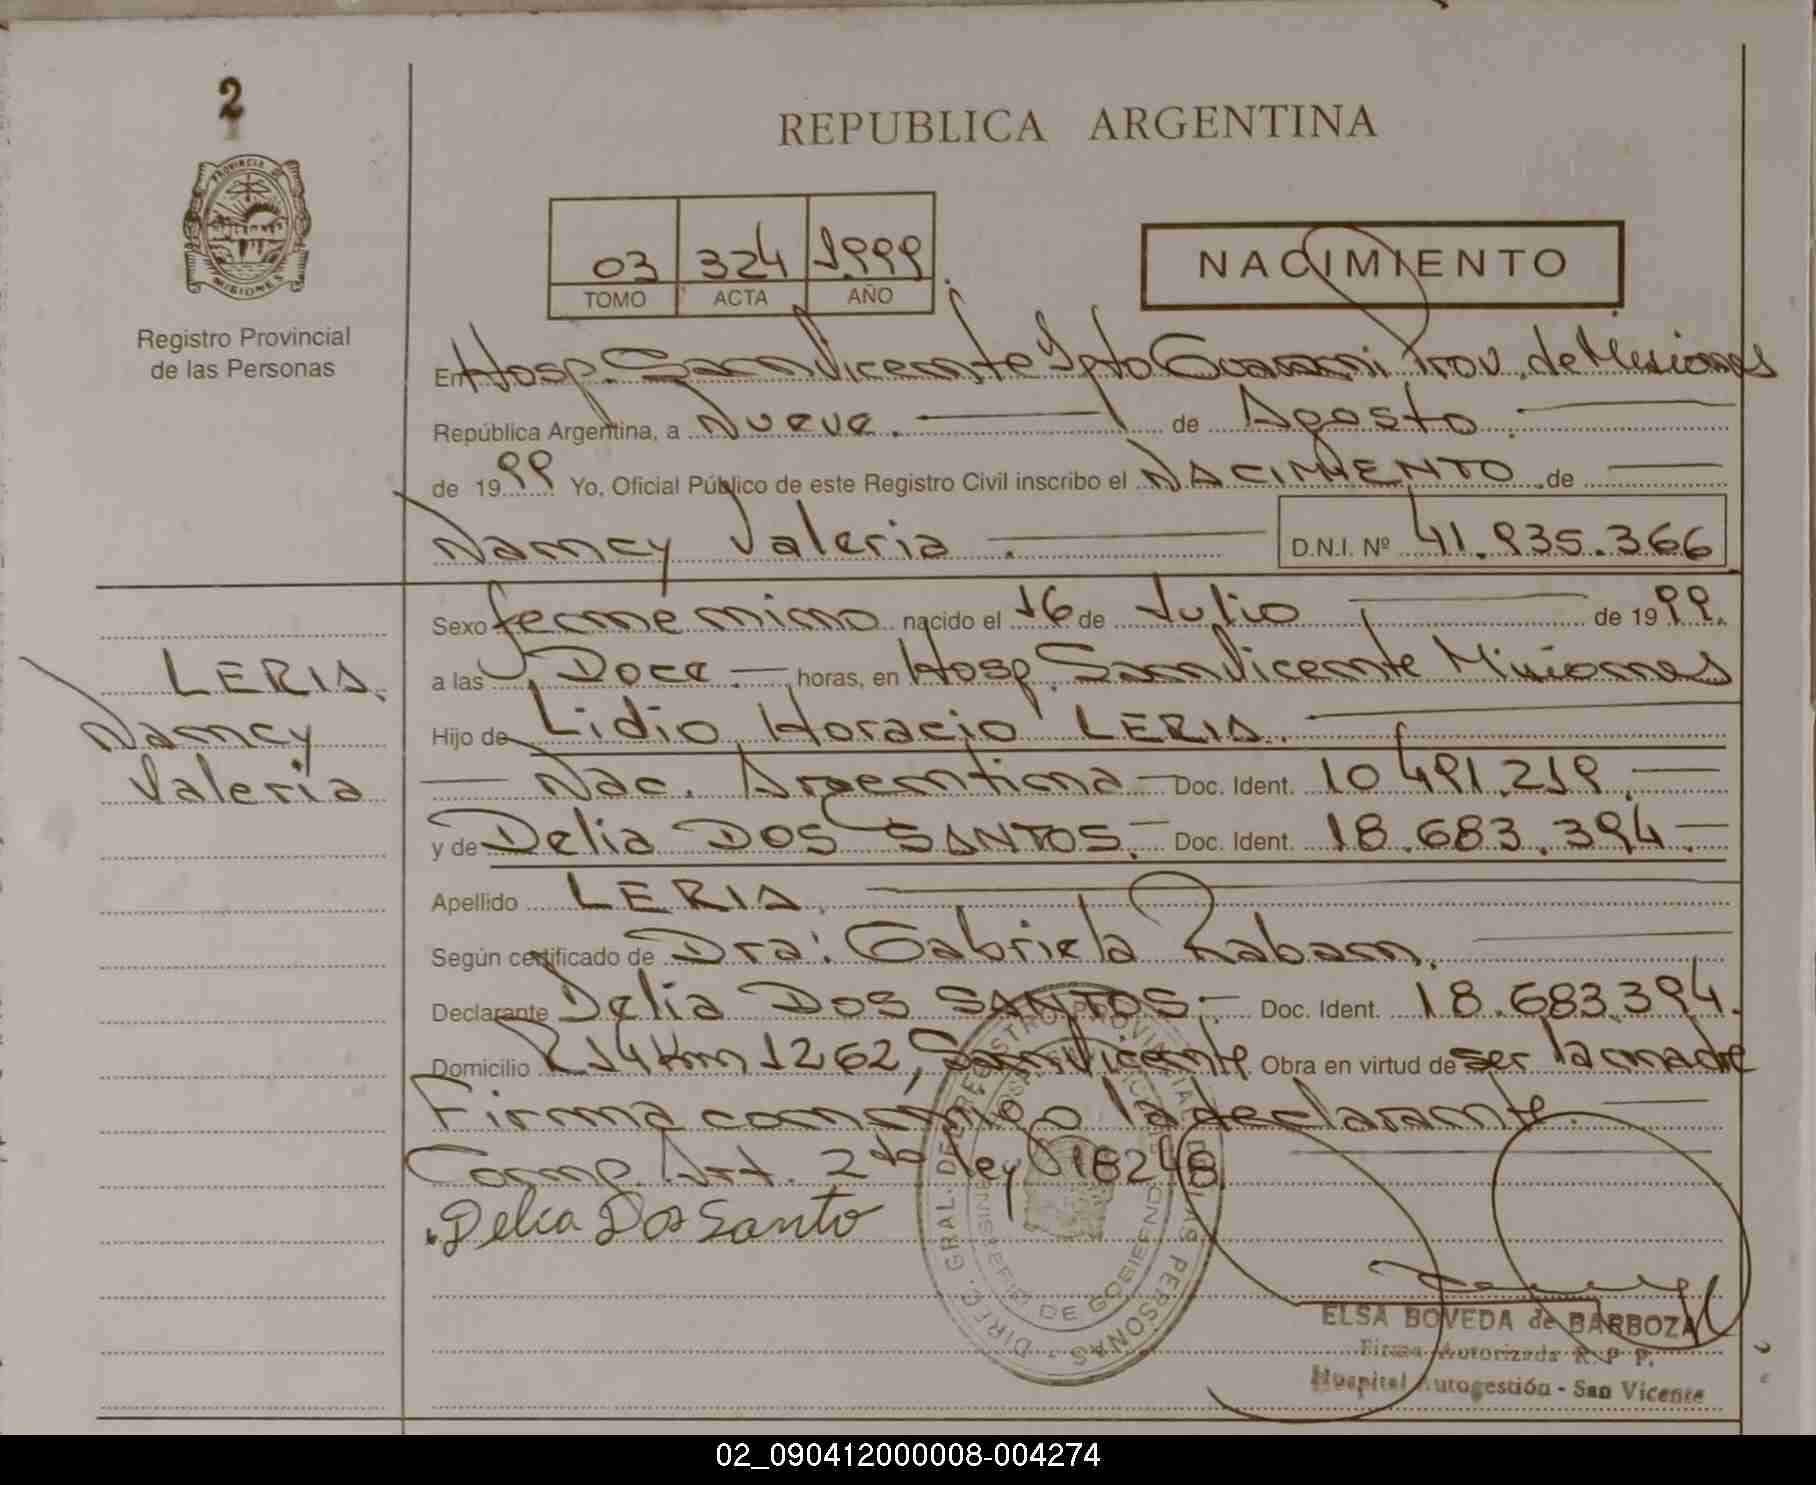 2
REPUBLICA ARGENTINA
PROVINCIA DE
MISIONES
Registro Provincial
de las Personas
03 324 1999
TOMO ACTA AÑO
NACIMIENTO
En Hosp. San Vicente Dpto Guarani Prov. de Misiones
República Argentina, a Nueve. de Agosto.
de 1999 Yo, Oficial Público de este Registro Civil inscribo el NACIMIENTO de
Nancy Valeria. D.N.I. Nº 41.935.366
Sexo femenino nacido el 16 de Julio de 1999.
a las Doce.- horas, en Hosp. San Vicente Misiones
LERIA.
Nancy
Valeria
Hijo de Lidio Horacio LERIA.
Nac. Argentina - Doc. Ident. 10.491.219.
y de Delia DOS SANTOS.- Doc. Ident. 18.683.394.
Apellido LERIA.
Según certificado de Dra: Gabriela Raban.
Declarante Delia DOS SANTOS.- Doc. Ident. 18.683.394.
Domicilio R 14 Km 1262, San Vicente Obra en virtud de ser la madre
Firma conmigo la declarante.
Comp. Art. 2do ley 18248.
Delia Dos Santo
DIREC. GRAL. DEL REGISTRO PROVINCIAL DE LAS PERSONAS
MINISTERIO DE GOBIERNO
ELSA BOVEDA de BARBOZA
Firma Autorizada R. P. P.
Hospital Autogestión - San Vicente
02_090412000008-004274